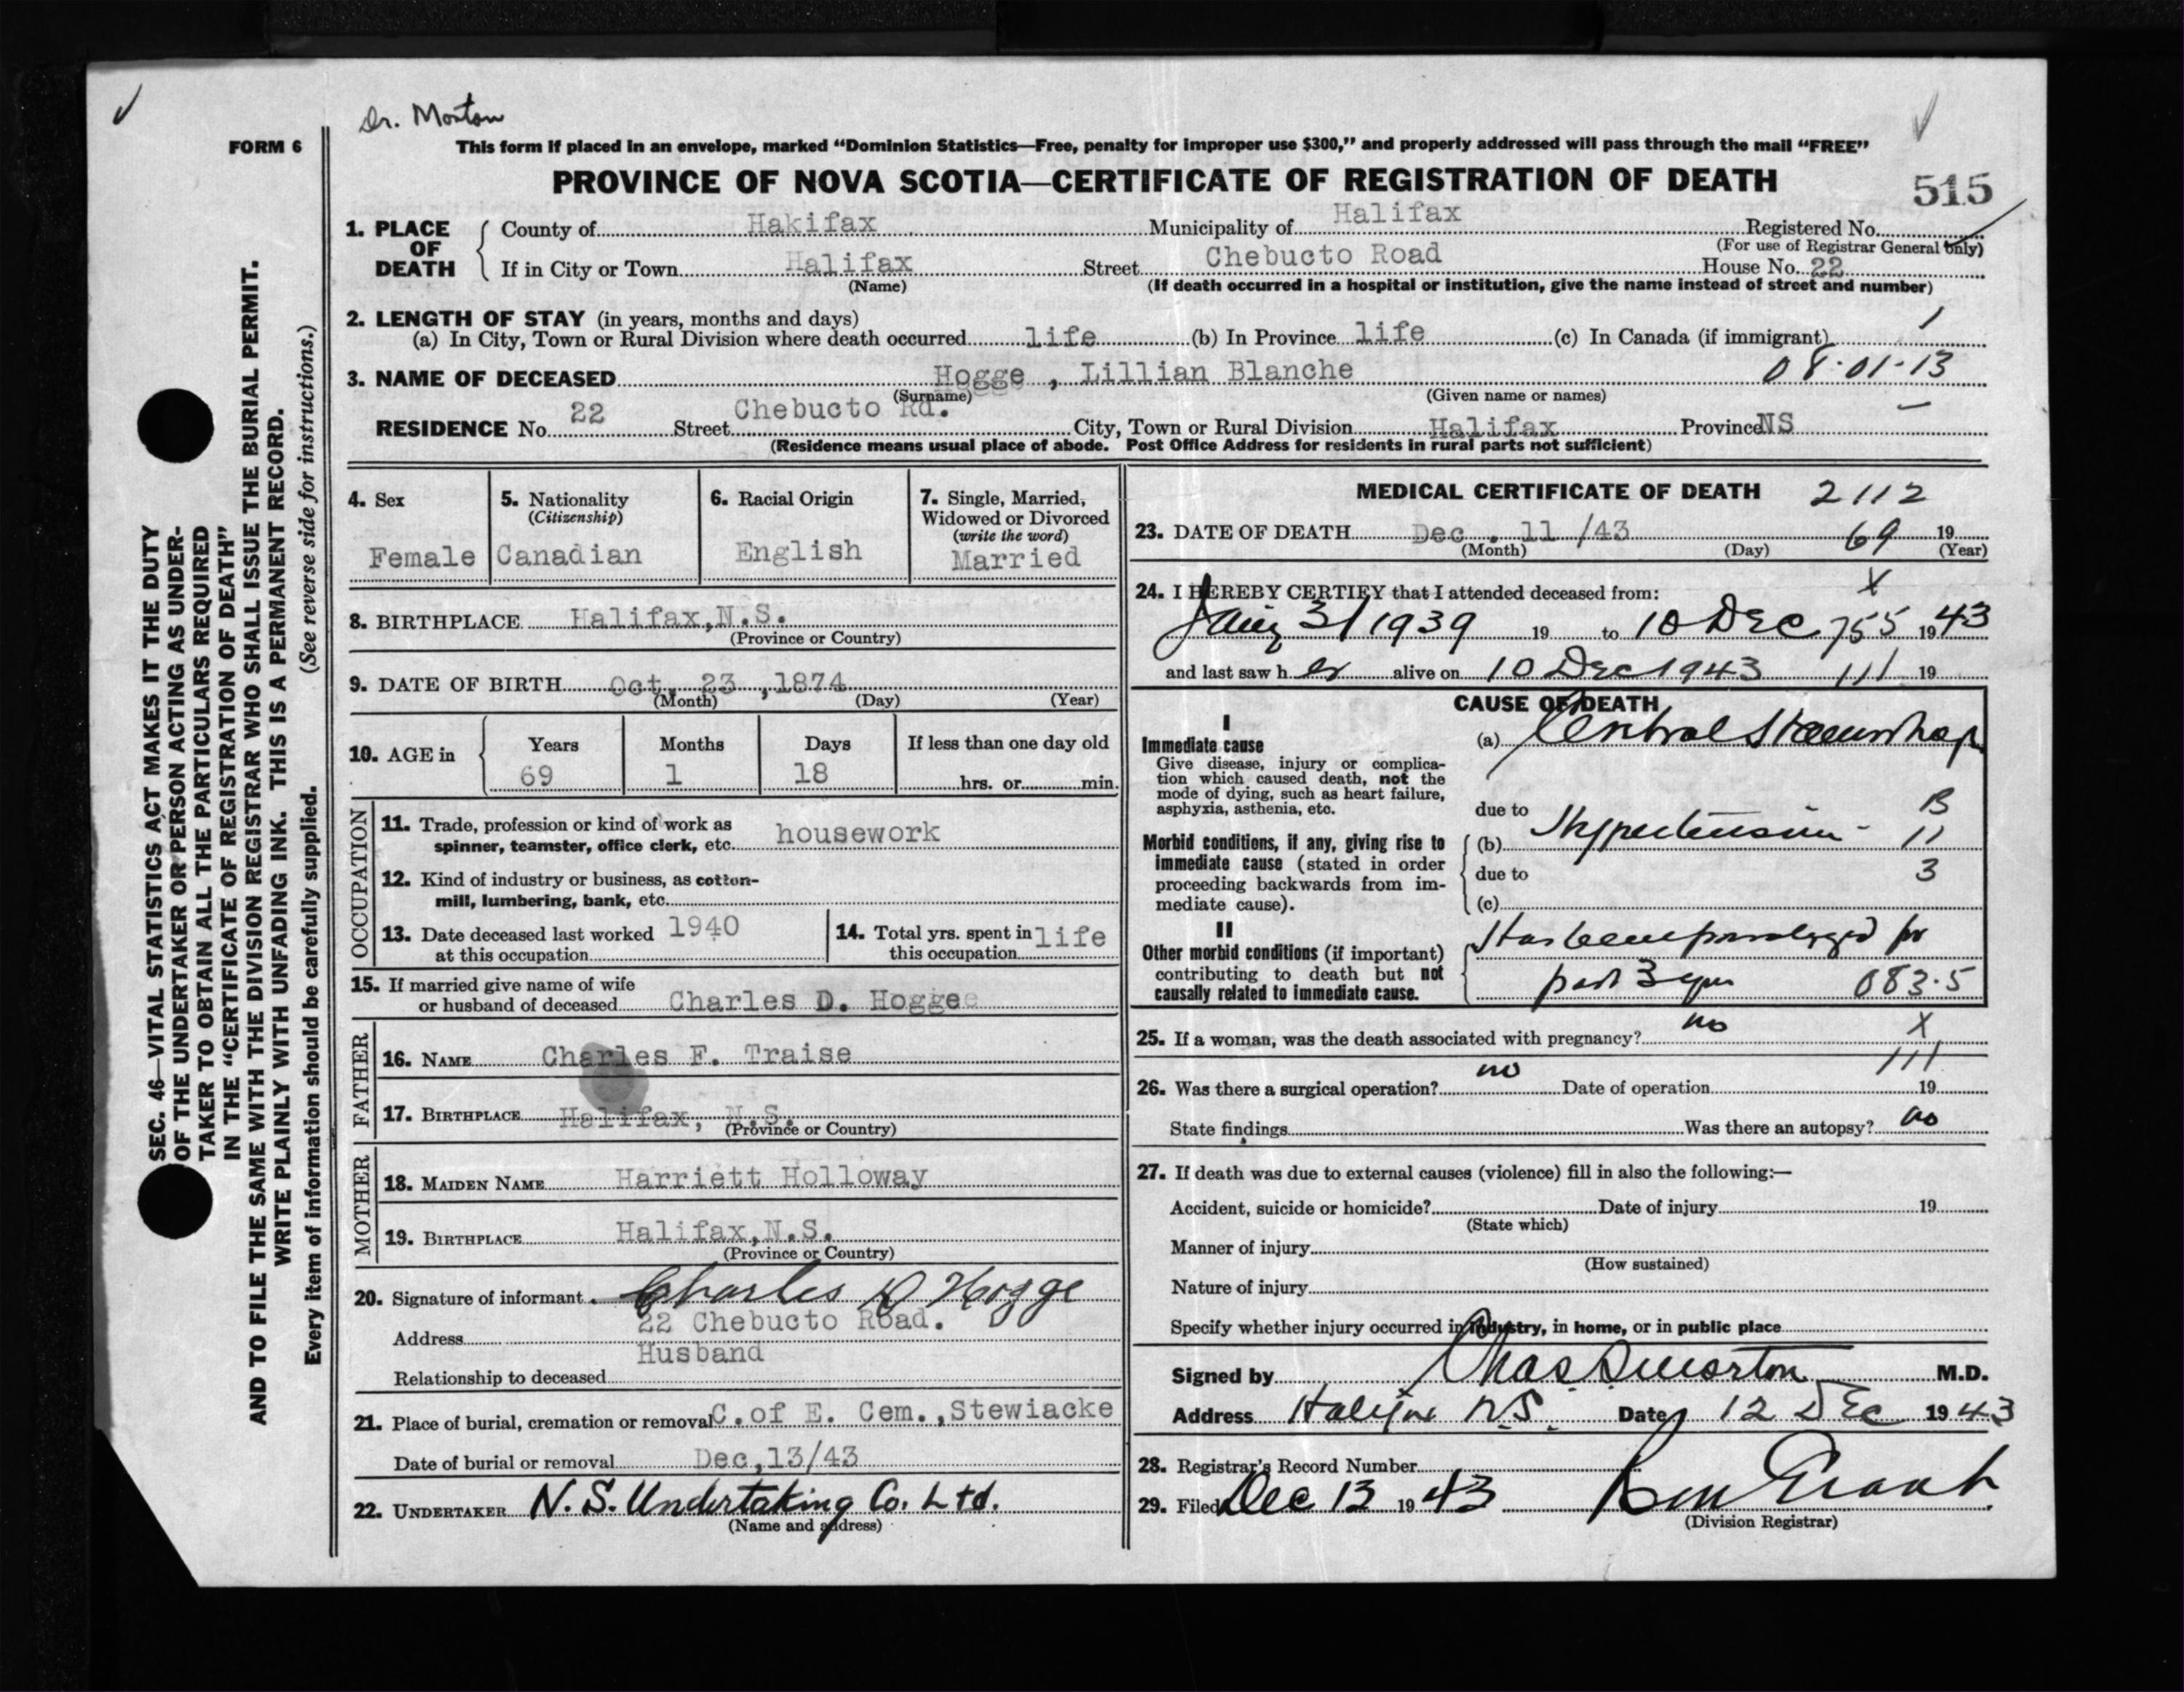 Dr. Morton
FORM 6
This form if placed in an envelope, marked “Dominion Statistics—Free, penalty for improper use $300,” and properly addressed will pass through the mail “FREE”
PROVINCE OF NOVA SCOTIA—CERTIFICATE OF REGISTRATION OF DEATH
515
1. PLACE OF DEATH
County of Hakifax Municipality of Halifax Registered No.
(For use of Registrar General only)
If in City or Town Halifax Street Chebucto Road House No. 22
(Name) (If death occurred in a hospital or institution, give the name instead of street and number)
2. LENGTH OF STAY (in years, months and days)
(a) In City, Town or Rural Division where death occurred life (b) In Province life (c) In Canada (if immigrant)
3. NAME OF DECEASED Hogge , Lillian Blanche 08.01-13
(Surname) (Given name or names)
RESIDENCE No. 22 Street Chebucto Rd. City, Town or Rural Division Halifax Province NS
(Residence means usual place of abode. Post Office Address for residents in rural parts not sufficient)
4. Sex
Female
5. Nationality
(Citizenship)
Canadian
6. Racial Origin
English
7. Single, Married,
Widowed or Divorced
(write the word)
Married
8. BIRTHPLACE Halifax,N.S.
(Province or Country)
9. DATE OF BIRTH Oct, 23 ,1874
(Month) (Day) (Year)
10. AGE in
Years Months Days If less than one day old
69 1 18 hrs. or min.
OCCUPATION
11. Trade, profession or kind of work as
spinner, teamster, office clerk, etc. housework
12. Kind of industry or business, as cotton-
mill, lumbering, bank, etc.
13. Date deceased last worked 1940
at this occupation
14. Total yrs. spent in life
this occupation
15. If married give name of wife
or husband of deceased Charles D. Hoggee
FATHER
16. NAME Charles F. Traise
17. BIRTHPLACE Halifax, N.S.
(Province or Country)
MOTHER
18. MAIDEN NAME Harriett Holloway
19. BIRTHPLACE Halifax,N.S.
(Province or Country)
20. Signature of informant Charles D Hogge
Address 22 Chebucto Road.
Relationship to deceased Husband
21. Place of burial, cremation or removal C. of E. Cem.,Stewiacke
Date of burial or removal Dec,13/43
22. UNDERTAKER N.S. Undertaking Co. Ltd.
(Name and address)
MEDICAL CERTIFICATE OF DEATH 2112
23. DATE OF DEATH Dec . 11 /43 69 19
(Month) (Day) (Year)
24. I HEREBY CERTIFY that I attended deceased from: X
31 1939 19 to 10 Dec 755 1943
and last saw h er alive on 10 Dec 1943 111 19
CAUSE OF DEATH
I
Immediate cause
Give disease, injury or complica-
tion which caused death, not the
mode of dying, such as heart failure,
asphyxia, asthenia, etc.
(a)
due to B
Morbid conditions, if any, giving rise to
immediate cause (stated in order
proceeding backwards from im-
mediate cause).
(b) Hypertension - 11
due to 3
(c)
II
Other morbid conditions (if important)
contributing to death but not
causally related to immediate cause.
Has been paralyzed for
past 3 yrs 083.5
25. If a woman, was the death associated with pregnancy? no X
111
26. Was there a surgical operation? no Date of operation 19
State findings Was there an autopsy? no
27. If death was due to external causes (violence) fill in also the following:—
Accident, suicide or homicide? Date of injury 19
(State which)
Manner of injury
(How sustained)
Nature of injury
Specify whether injury occurred in industry, in home, or in public place
Signed by Chas Morton M.D.
Address Halifax N.S. Date 12 Dec 1943
28. Registrar's Record Number
29. Filed Dec 13 1943
(Division Registrar)
SEC. 46—VITAL STATISTICS ACT MAKES IT THE DUTY
OF THE UNDERTAKER OR PERSON ACTING AS UNDER-
TAKER TO OBTAIN ALL THE PARTICULARS REQUIRED
IN THE “CERTIFICATE OF REGISTRATION OF DEATH”
AND TO FILE THE SAME WITH THE DIVISION REGISTRAR WHO SHALL ISSUE THE BURIAL PERMIT.
WRITE PLAINLY WITH UNFADING INK. THIS IS A PERMANENT RECORD.
Every item of information should be carefully supplied. (See reverse side for instructions.)